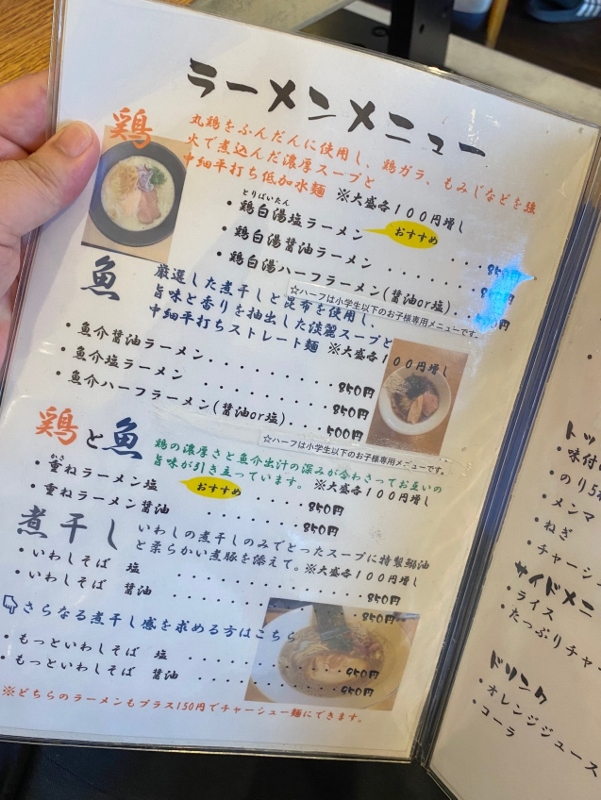 ラーメンメニュー
鶏
丸鶏をふんだんに使用し、鶏ガラ、もみじなどを強
火で煮込んだ濃厚スープと
中細平打ち低加水麺 ※大盛各100円増し
とりぱいたん
・鶏白湯塩ラーメン
おすすめ
・鶏白湯醤油ラーメン
・鶏白湯ハーフラーメン(醤油or塩)
☆ハーフは小学生以下のお子様専用メニューです。
魚
厳選した煮干しと昆布を使用し、
旨味と香りを抽出した淡麗スープと
中細平打ちストレート麺 ※大盛各100円増し
・魚介醤油ラーメン..........850円
・魚介塩ラーメン..........850円
・魚介ハーフラーメン(醤油or塩)....500円
☆ハーフは小学生以下のお子様専用メニューです。
鶏と魚
鶏の濃厚さと魚介出汁の深みが合わさってお互いの
旨味が引き立っています。 ※大盛各100円増し
かさ
・重ねラーメン塩 おすすめ ......850円
・重ねラーメン醤油 ........850円
煮干し
いわしの煮干しのみでとったスープに特製鰯油
と柔らかい煮豚を添えて。※大盛各100円増し
・いわしそば 塩 ..........850円
・いわしそば 醤油 ..........850円
さらなる煮干し感を求める方はこちら
・もっといわしそば 塩 ..........950円
・もっといわしそば 醤油 ..........950円
※どちらのラーメンもプラス150円でチャーシュー麺にできます。
・味付
・のり5
・メンマ
・ねぎ
・チャーシ
サイドメニ
・ライス
・たっぷりチャー
ドリンク
・オレンジジュース
・コーラ